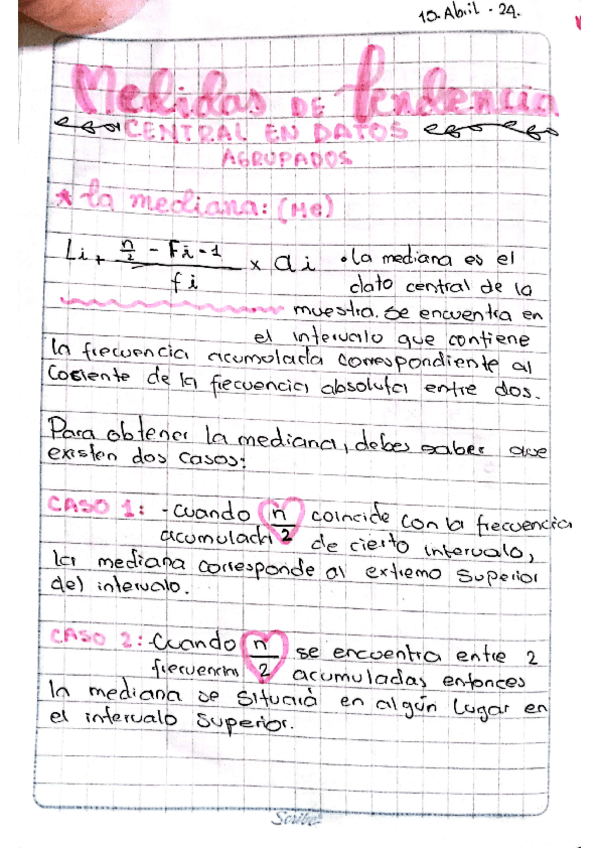 10. Abril - 24.
Medidas DE Tendencia
CENTRAL EN DATOS
AGRUPADOS
* la mediana: (Me)
Li + n/2 - Fi-1 / fi x ai
• La mediana es el
dato central de la
muestra. Se encuentra en
el intervalo que contiene
la frecuencia acumulada correspondiente al
cociente de la frecuencia absoluta entre dos.
Para obtener la mediana, debes saber que
existen dos casos:
CASO 1: - Cuando n/2 coincide con la frecuencia
acumulada de cierto intervalo,
la mediana corresponde al extremo superior
del intervalo.
CASO 2: - Cuando n/2 se encuentra entre 2
frecuencias acumuladas, entonces
la mediana se situará en algún lugar en
el intervalo superior.
Scribe